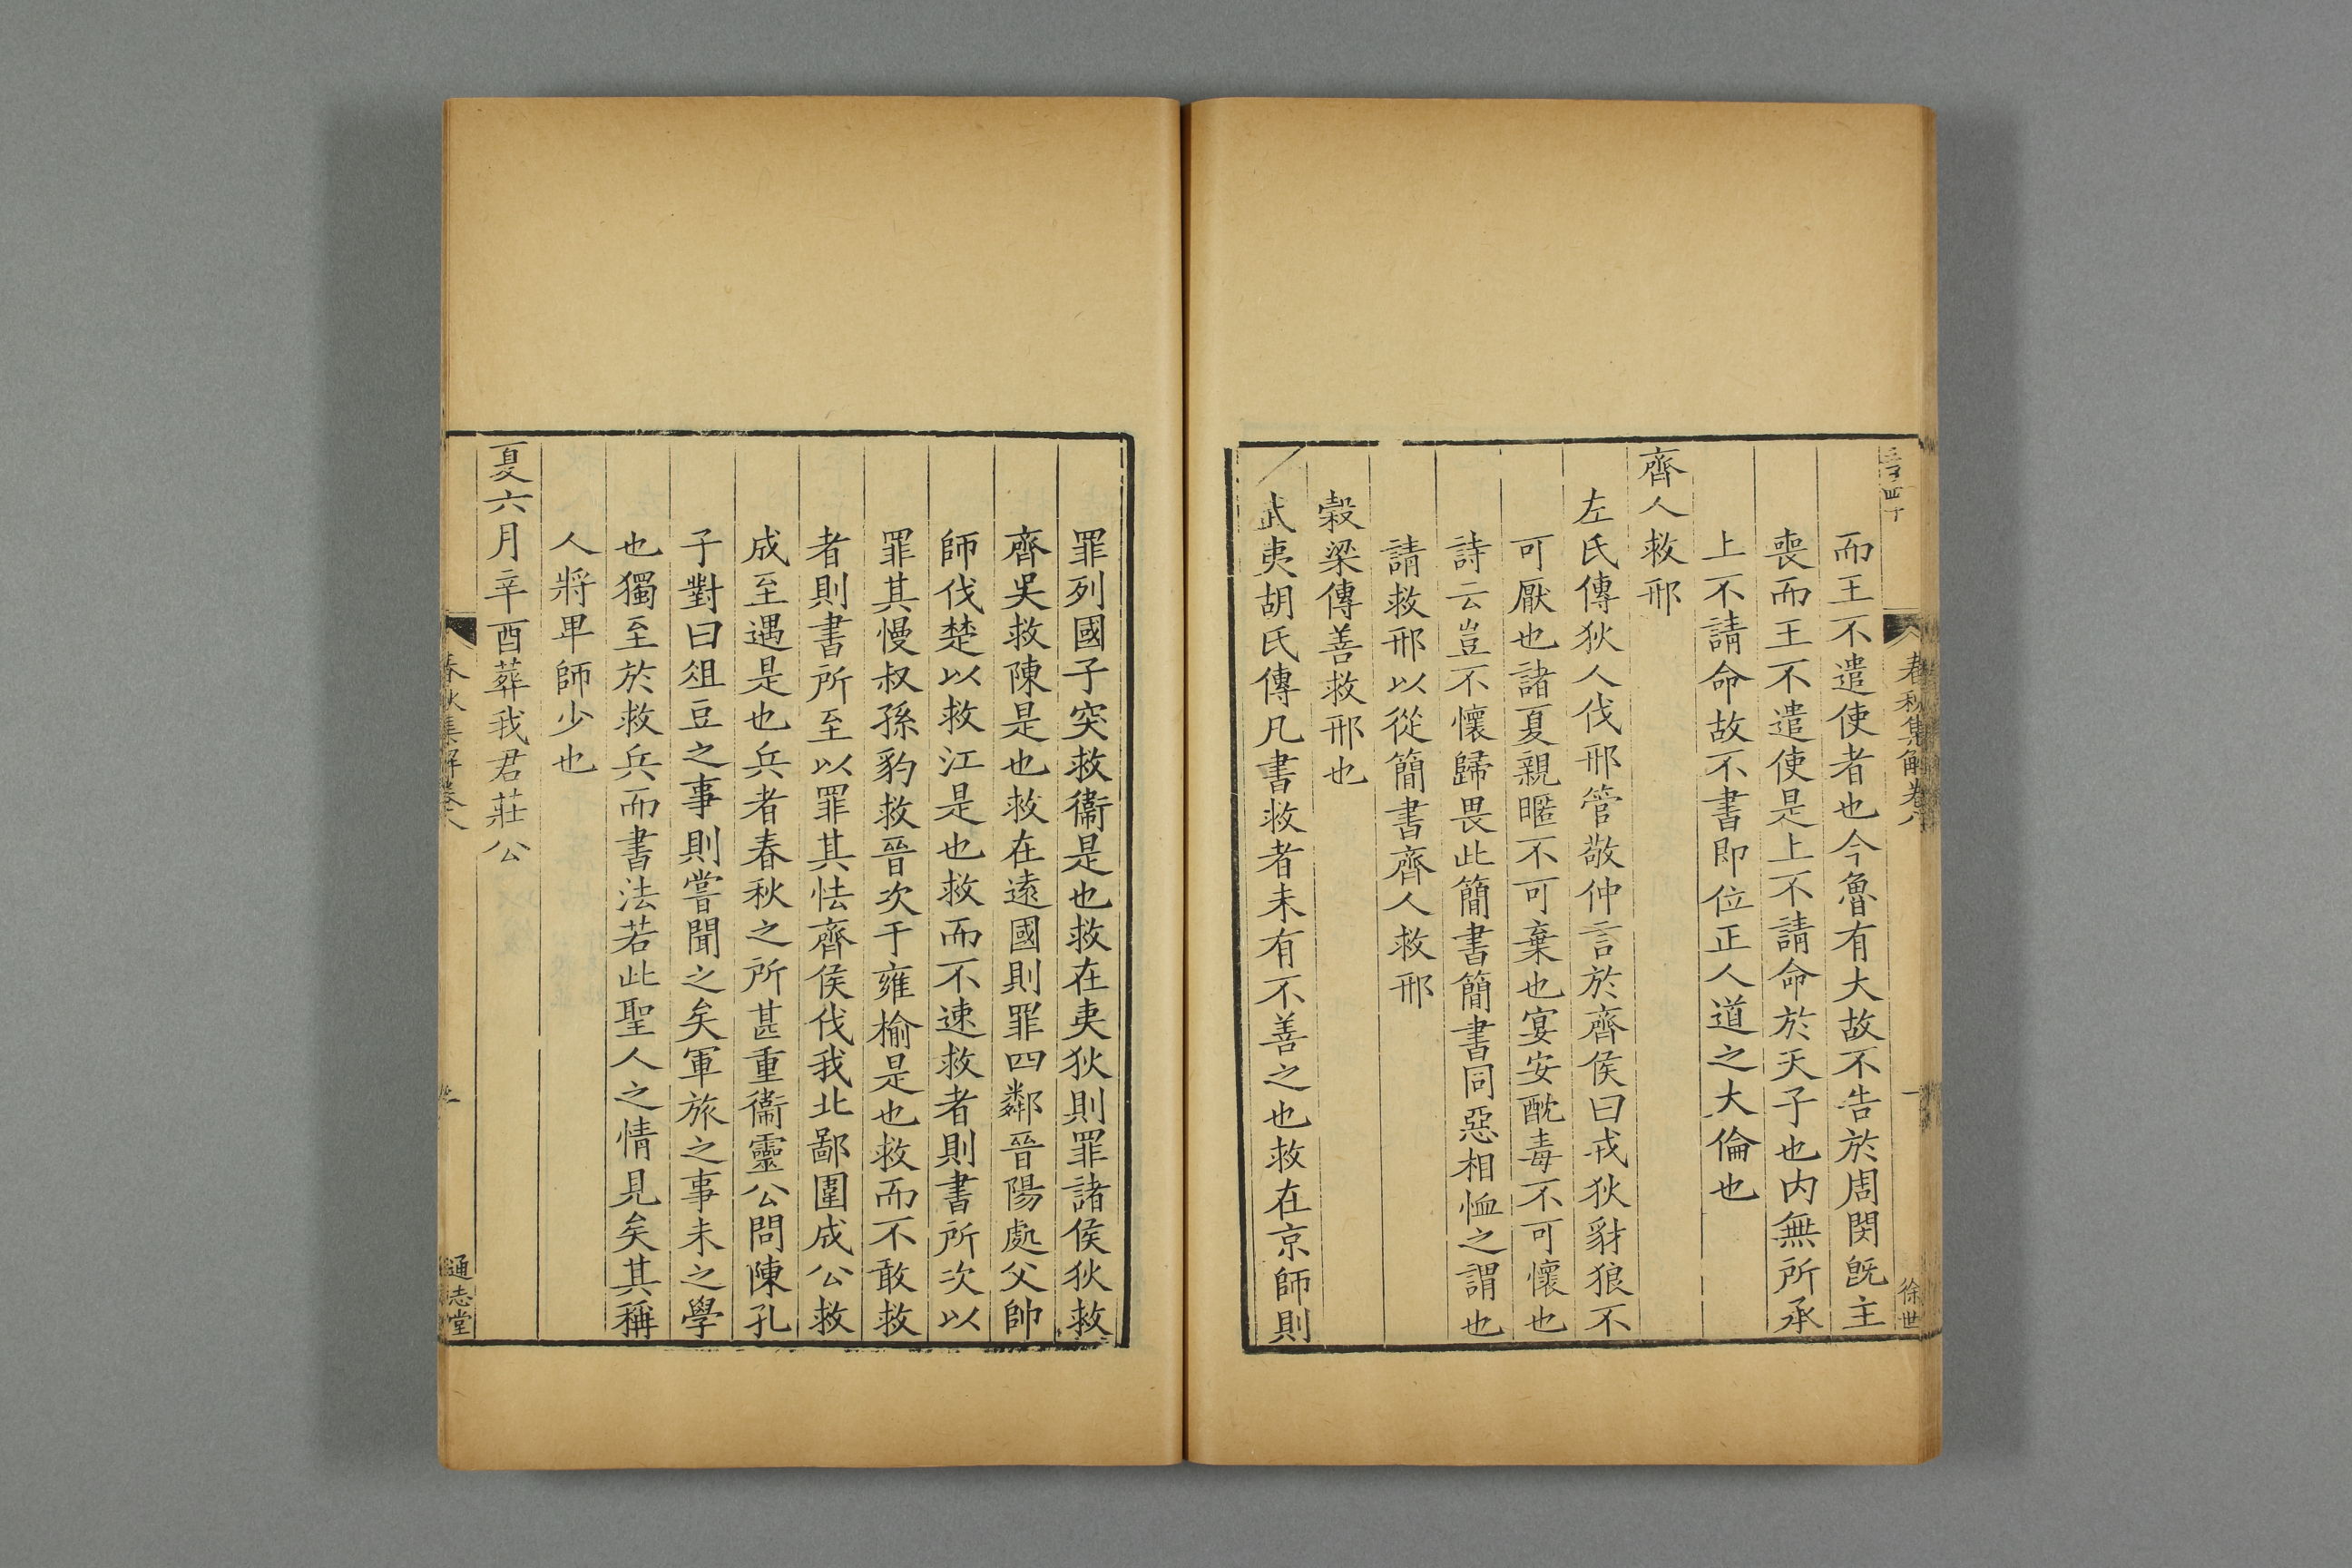 春秋集解卷八
一
徐世
而王不遣使者也今魯有大故不告於周閔旣主
喪而王不遣使是上不請命於天子也内無所承
上不請命故不書即位正人道之大倫也
齊人救邢
左氏傳狄人伐邢管敬仲言於齊侯曰戎狄豺狼不
可厭也諸夏親暱不可棄也宴安酖毒不可懷也
詩云豈不懷歸畏此簡書簡書同惡相恤之謂也
請救邢以從簡書齊人救邢
穀梁傳善救邢也
武夷胡氏傳凡書救者未有不善之也救在京師則
罪列國子突救衞是也救在夷狄則罪諸侯狄救
齊吳救陳是也救在逺國則罪四鄰晉陽處父帥
師伐楚以救江是也救而不速救者則書所次以
罪其慢叔孫豹救晉次于雍榆是也救而不敢救
者則書所至以罪其怯齊侯伐我北鄙圍成公救
成至遇是也兵者春秋之所甚重衞靈公問陳孔
子對曰俎豆之事則嘗聞之矣軍旅之事未之學
也獨至於救兵而書法若此聖人之情見矣其稱
人將卑師少也
夏六月辛酉葬我君莊公
春秋集解卷八
通志堂